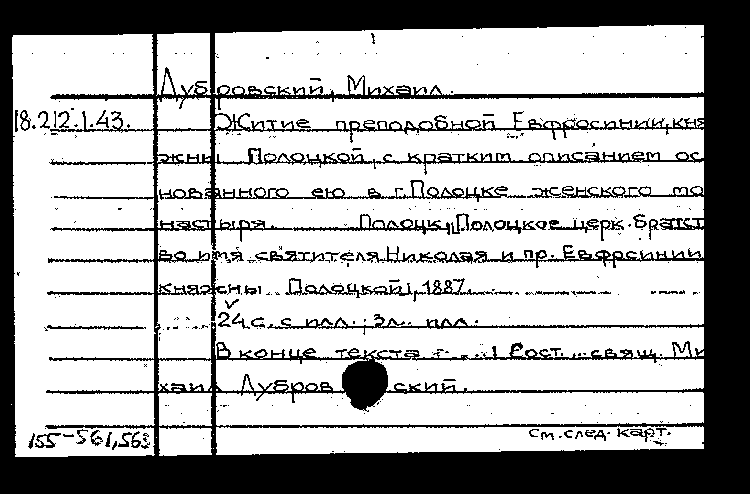 Дубровский, Михаил.
18.212.1.43. Житие преподобной Евфросинии, кня
жны Полоцкой, с кратким описанием ос
нованного ею в г. Полоцке женского мо
настыря. Полоцк, [Полоцкое церк. братст
во имя святителя Николая и пр. Евфрсинии
княжны Полоцкой], 1887.
24 с. с илл.; 3 л. илл.
В конце текста : Сост. свящ. Ми
хаил Дубровский.
155-561,563 См. след. карт.